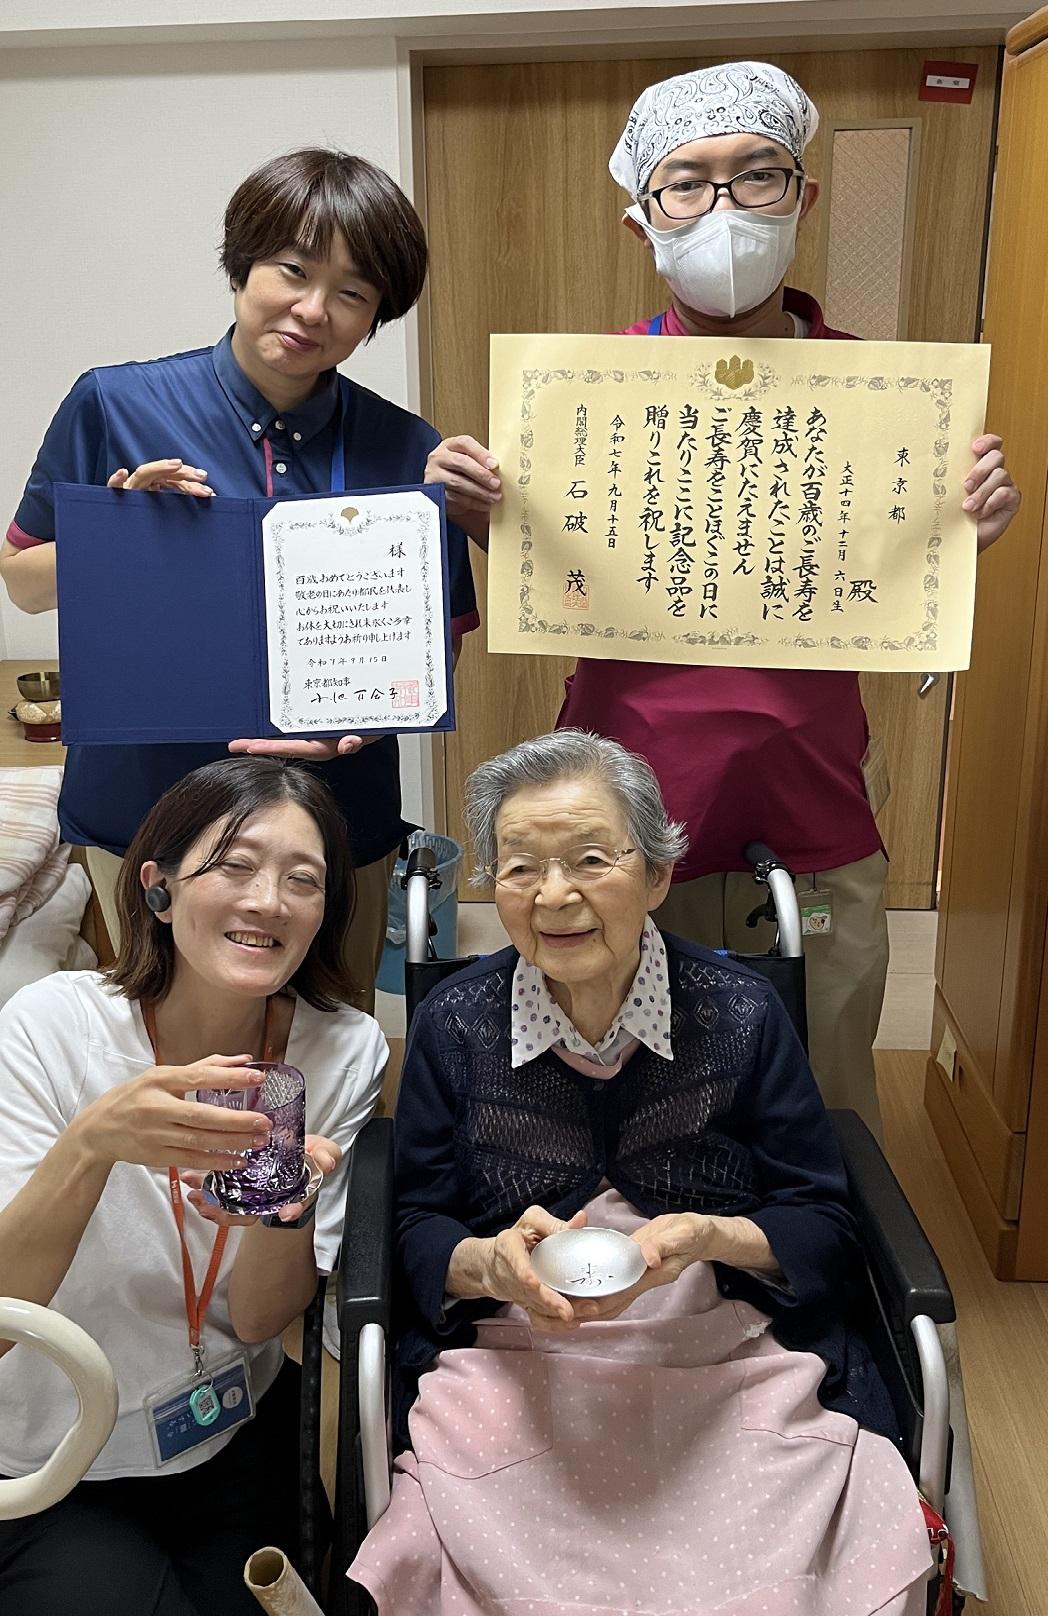 東京都
大正十四年十二月 六日生
殿
あなたが百歳のご長寿を
達成されたことは誠に
慶賀にたえません
ご長寿をことほぐこの日に
当たりここに記念品を
贈りこれを祝します
令和七年九月十五日
内閣総理大臣 石破 茂
様
百歳おめでとうございます
敬老の日にあたり都民を代表し
心からお祝いいたします
お体を大切にされ末永くご多幸
でありますようお祈り申し上げます
令和7年9月15日
東京都知事
小池百合子
寿